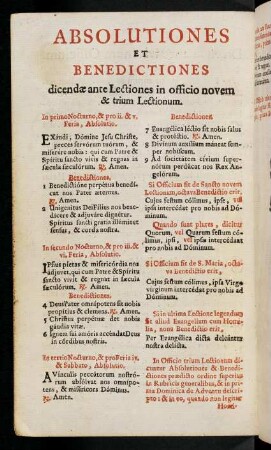 ABSOLUTIONES
ET
BENEDICTIONES
dicendæ ante Lectiones in officio novem
& trium Lectionum.
In primo Nocturno, & pro ii. & v.
Feria, Absolutio.
EXaudi, Dómine Jesu Christe,
preces servórum tuórum, &
miserére nobis: qui cum Patre &
Spíritu sancto vivis & regnas in
sæcula sæculórum. ℟. Amen.
Benedictiones.
1 Benedictióne perpétua benedí-
cat nos Pater ætérnus.
℟. Amen.
2 Unigénitus Dei Fílius nos bene-
dícere & adjuváre dignétur.
3 Spíritus sancti grátia illúminet
sensus, & corda nostra.
In secundo Nocturno, & pro iii. &
vi. Feria, Absolutio.
IPsíus píetas & misericórdia nos
ádjuvet, qui cum Patre & Spíritu
sancto vivit & regnat in sæcula
sæculórum. ℟. Amen.
Benedictiones.
4 Deus Pater omnípotens sit nobis
propítius & clemens. ℟. Amen.
5 Christus perpétuæ det nobis
gáudia vitæ.
6 Ignem sui amóris accéndat Deus
in córdibus nostris.
In tertio Nocturno, & pro Feria iv.
& Sabbato, Absolutio.
A Vínculis peccatórum nostró-
rum absólvat nos omnípo-
tens, & miséricors Dóminus.
℟. Amen.
Benedictiones.
7 Evangélica léctio sit nobis salus
& protéctio. ℟. Amen.
8 Divínum auxílium máneat sem-
per nobíscum.
9 Ad societátem cívium super-
nórum perdúcat nos Rex An-
gelórum.
Si Officium fit de Sancto novem
Lectionum, octava Benedictio erit.
Cujus festum cólimus, ipse, vel
ipsa intercédat pro nobis ad Dó-
minum.
Quando sunt plures, dicitur
Quorum, vel Quarum festum có-
limus, ipsi, vel ipsæ intercédant
pro nobis ad Dóminum.
Si Officium fit de S. Maria, octa-
va benedictio erit,
Cujus festum cólimus, ipsa Virgo
vírginum intercédat pro nobis ad
Dóminum.
Si in ultima Lectione legendum
sit aliud Evangelium cum Homi-
lia, nona Benedictio erit,
Per Evangélica dicta deleántur
nostra delícta.
In Officio trium Lectionum di-
cuntur Absolutiones & Benedi-
ctiones prædictæ ordine superius
in Rubricis generalibus, & in prima
Dominica de Adventu descri-
pto: & in eo, quando non legitur
Homi-